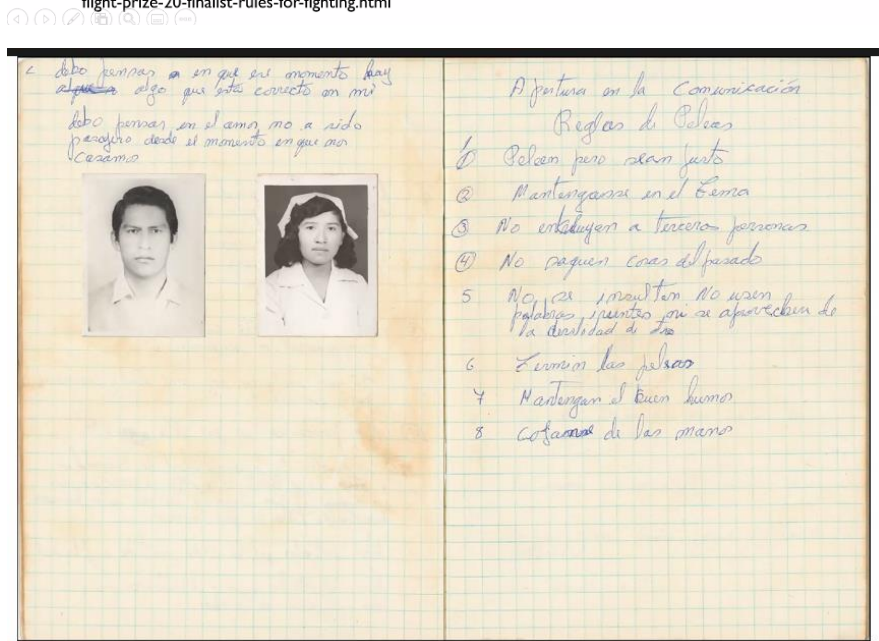 flight-prize-20-finalist-rules-for-fighting.html
debo pensar en que ese momento hay
algo que está correcto en mi
debo pensar en el amor no a sido
pasajero desde el momento en que nos
casamos
Apertura en la Comunicación
Reglas de Peleas
1 Peleen pero sean justo
2 Mantenganse en el tema
3 No encluyan a terceros personas
4 No saquen cosas del pasado
5 No se insulten No usen
palabras irientes ni se aprovechen de
la devilidad de
6 Termin las peleas
7 Mantengan el buen humor
8 de las manos